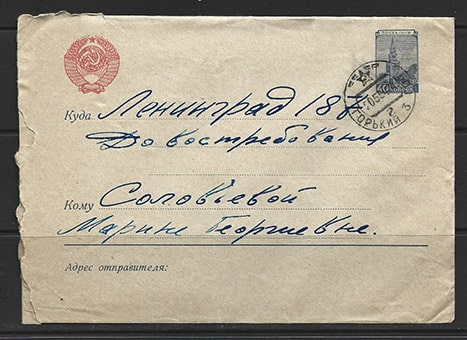 ПОЧТА СССР
40 КОПЕЕК
ГОРЬКИЙ
Куда Ленинград 18
До востребования
Кому Соловьевой
Марине Георгиевне.
Адрес отправителя: